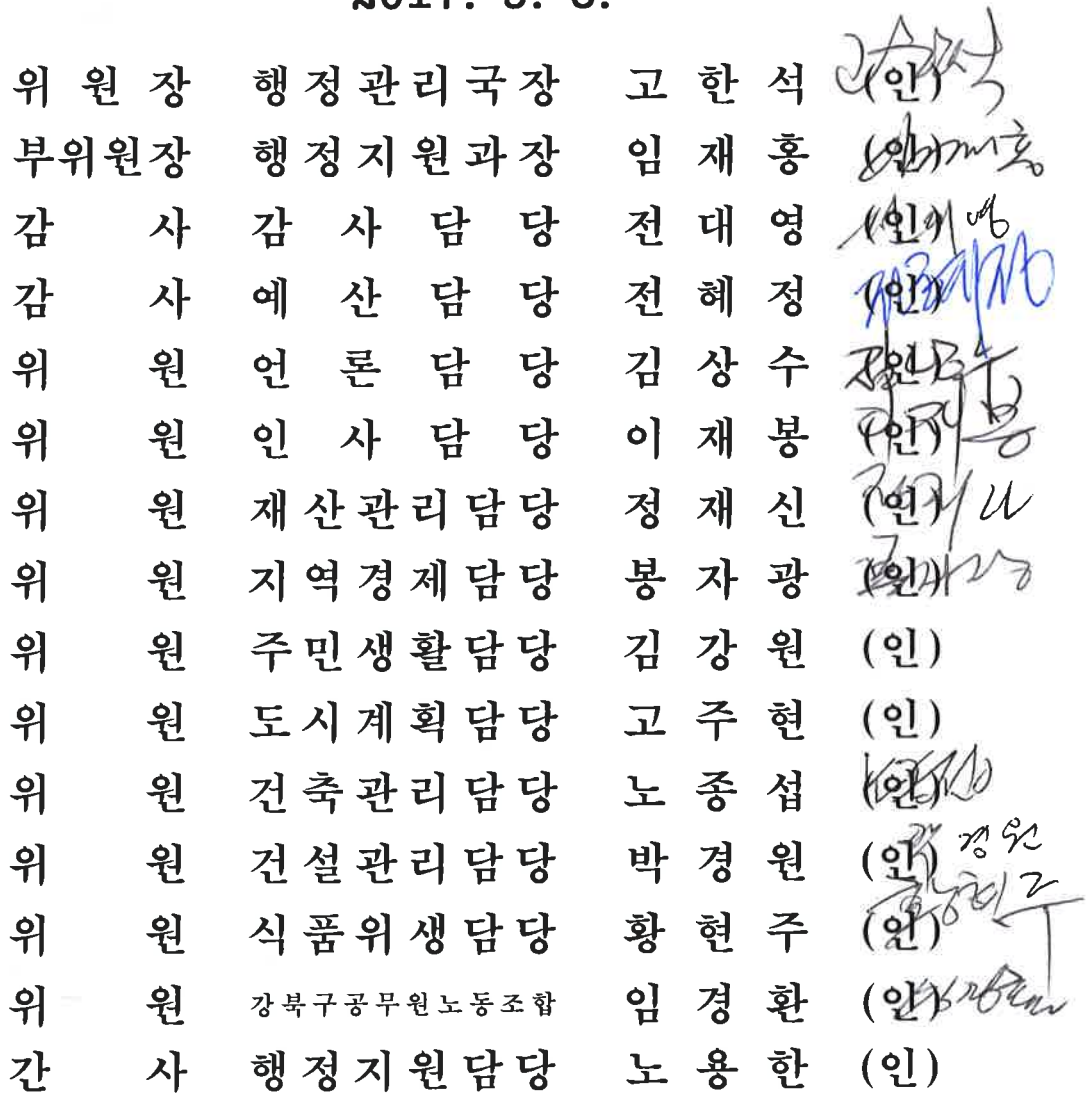 위 원 장 행정관리국장 고 한 석 (인)
부위원장 행정지원과장 임 재 홍 (인)
감 사 감 사 담 당 전 대 영 (인)
감 사 예 산 담 당 전 혜 정 (인)
위 원 언 론 담 당 김 상 수 (인)
위 원 인 사 담 당 이 재 봉 (인)
위 원 재산관리담당 정 재 신 (인)
위 원 지역경제담당 봉 자 광 (인)
위 원 주민생활담당 김 강 원 (인)
위 원 도시계획담당 고 주 현 (인)
위 원 건축관리담당 노 종 섭 (인)
위 원 건설관리담당 박 경 원 (인) 경원
위 원 식품위생담당 황 현 주 (인)
위 원 강북구공무원노동조합 임 경 환 (인)
간 사 행정지원담당 노 용 한 (인)